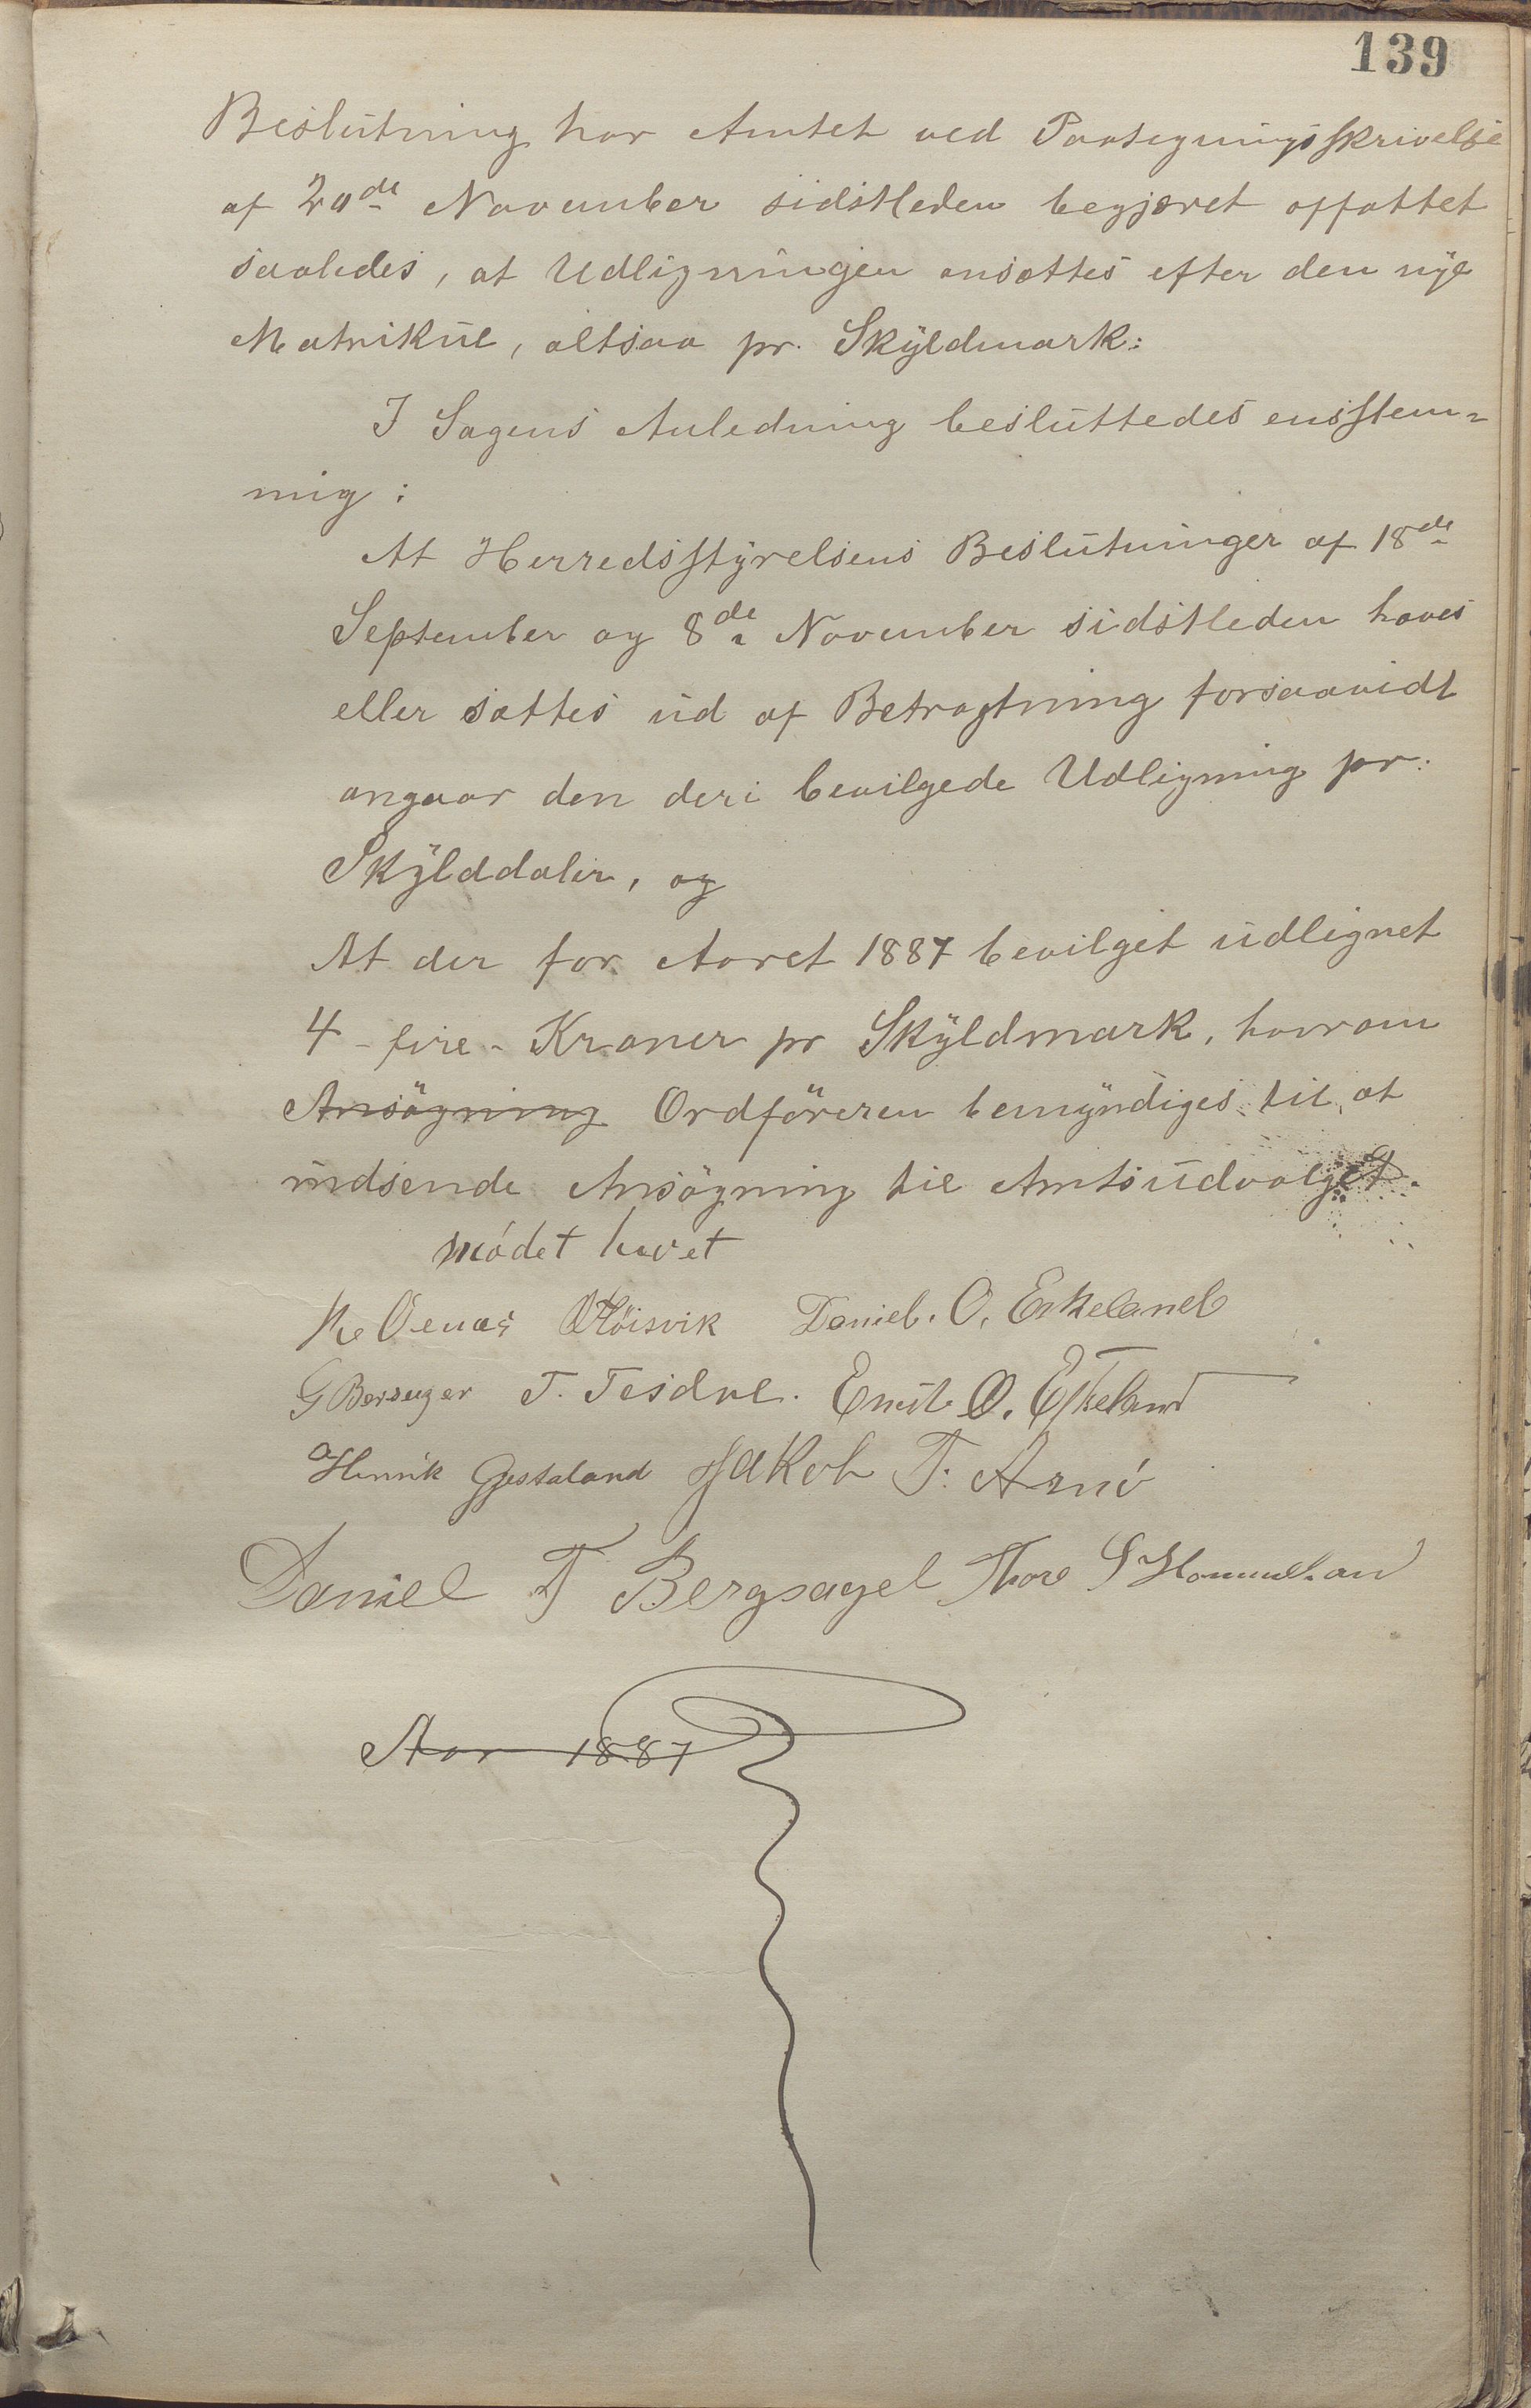 139
Beslutning har Amtet ved Paategningsskrivelse
af 20de November sidstleden begjæret affattet
saaledes, at Udligningen ansættes efter den nye
Matrikul, altsaa pr. Skyldmark:
I Sagens Anledning besluttedes enstem-
mig:
At Herredsstyrelsens Beslutninger af 18de
September og 8de November sidstleden hæves
eller sættes ud af Betragtning forsaavidt
angaar den deri bevilgede Udligning pr.
Skylddaler, og
At der for Aaret 1887 bevilget udlignet
4 - fire - Kroner pr Skyldmark, hvorom
Ansögning Ordföreren bemyndiges til at
indsende Ansögning til Amtsudvalget.
Mödet hævet
Höisvik Daniel. O. Eskeland
T. Tesdal. Emil O. Eskeland
Henrik Gjestaland Jakob T. Arnö
Daniel T Bergsagel Thore S Hommeland
Aar 1887